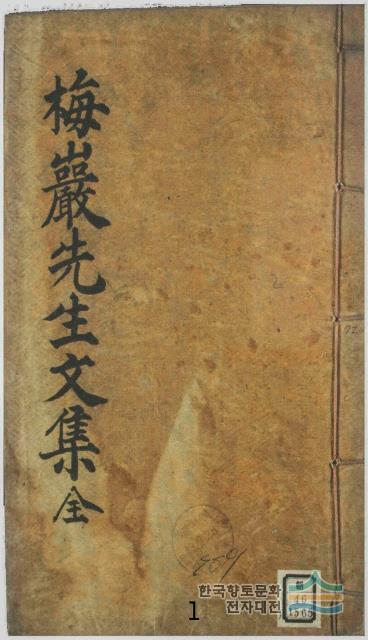 梅巖先生文集 全
한국향토문화
전자대전
1